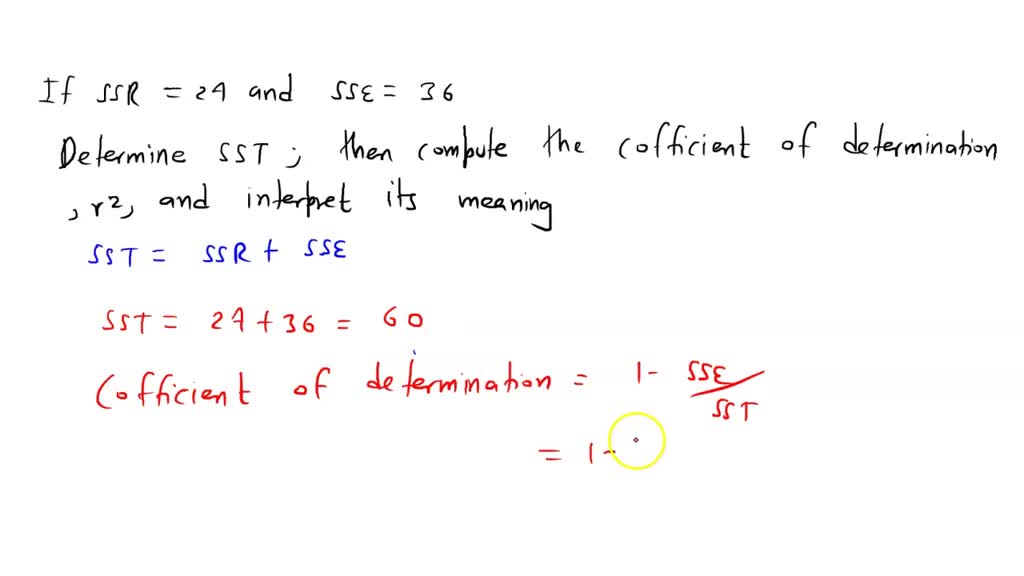 If SSR = 24 and SSE = 36
Determine SST ; then compute the cofficient of determination
, r², and interpret its meaning
SST = SSR + SSE
SST = 24 + 36 = 60
Cofficient of determination = 1 - SSE/SST
= 1 -